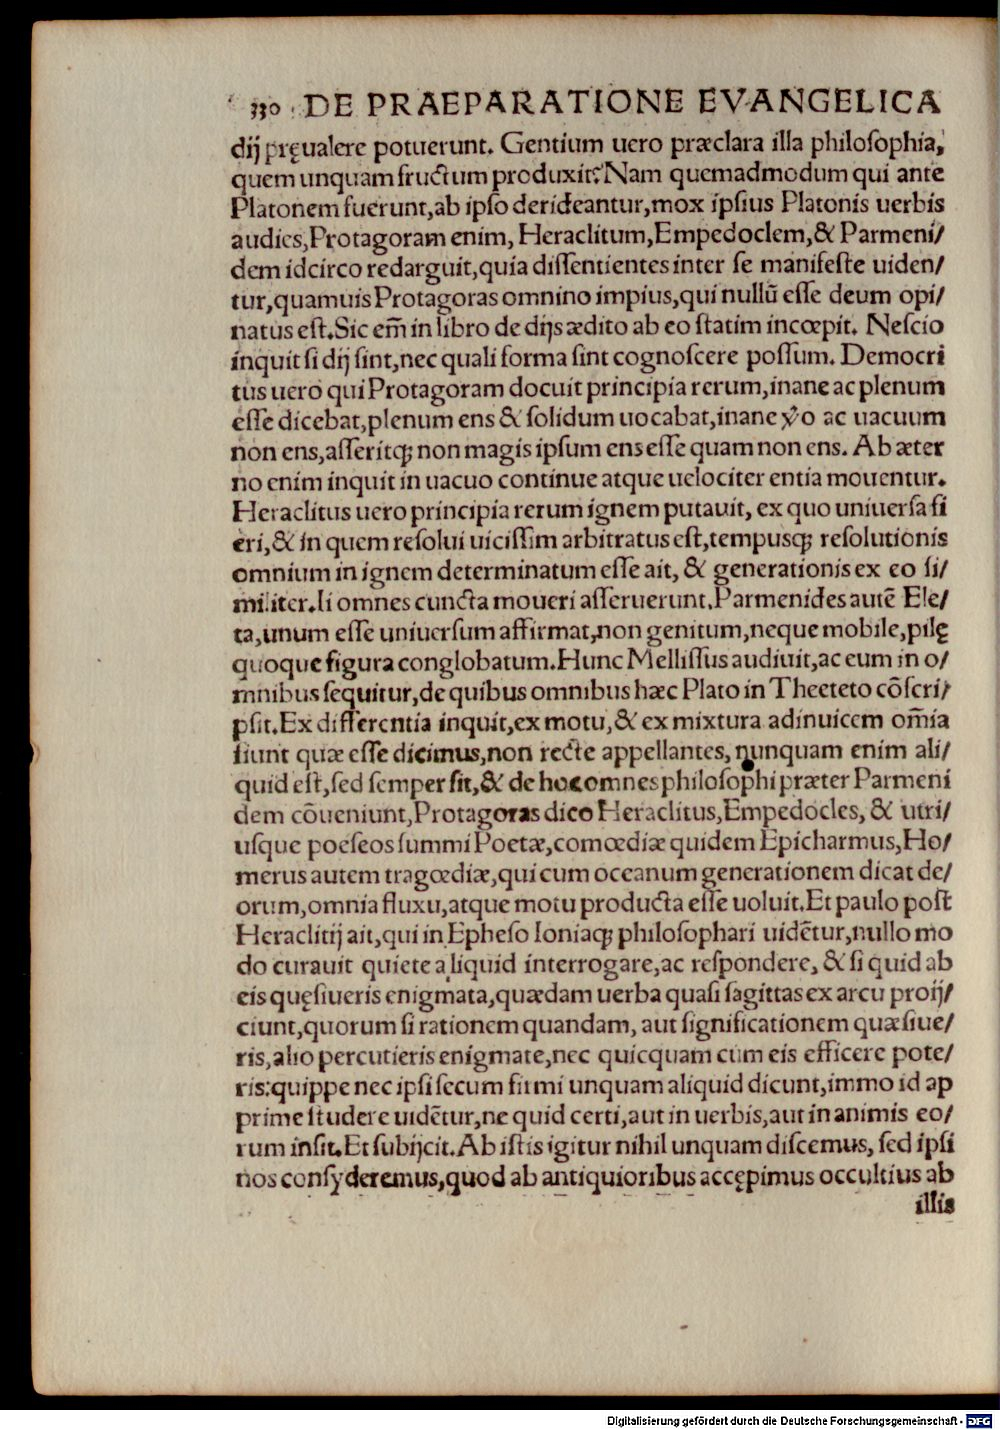 330 DE PRAEPARATIONE EVANGELICA
dij pręualere potuerunt. Gentium uero præclara illa philoſophia,
quem unquam fructum produxit? Nam quemadmodum qui ante
Platonem fuerunt,ab ipſo derideantur,mox ipſius Platonis uerbis
audies,Protagoram enim, Heraclitum,Empedoclem,& Parmeni/
dem idcirco redarguit,quia diſſentientes inter ſe manifeſte uiden/
tur,quamuis Protagoras omnino impius,qui nullũ eſſe deum opi/
natus eſt.Sic em̃ in libro de dijs ædito ab eo ſtatim incœpit. Neſcio
inquit ſi dij ſint,nec quali forma ſint cognoſcere poſſum. Democri
tus uero qui Protagoram docuit principia rerum,inane ac plenum
eſſe dicebat,plenum ens & ſolidum uocabat,inane ỷo ac uacuum
non ens,aſſeritq; non magis ipſum ens eſſe quam non ens. Ab æter
no enim inquit in uacuo continue atque uelociter entia mouentur.
Heraclitus uero principia rerum ignem putauit, ex quo uniuerſa fi
eri,& in quem reſolui uiciſſim arbitratus eſt,tempusq; reſolutionis
omnium in ignem determinatum eſſe ait, & generationis ex eo ſi/
militer.Ii omnes cuncta moueri aſſeruerunt.Parmenides autẽ Ele/
ta,unum eſſe uniuerſum affirmat,non genitum,neque mobile,pilę
quoque figura conglobatum.Hunc Melliſſus audiuit,ac eum in o/
mnibus ſequitur,de quibus omnibus hæc Plato in Theeteto cõſcri/
pſit.Ex differentia inquit,ex motu,& ex mixtura adinuicem om̃ia
fiunt quæ eſſe dicimus,non recte appellantes, nunquam enim ali/
quid eſt,ſed ſemper fit,& de hoc omnes philoſophi præter Parmeni
dem cõueniunt,Protagoras dico Heraclitus,Empedocles, & utri/
uſque poeſeos ſummi Poetæ,comœdiæ quidem Epicharmus,Ho/
merus autem tragœdiæ,qui cum oceanum generationem dicat de/
orum,omnia fluxu,atque motu producta eſſe uoluit.Et paulo poſt
Heraclitij ait,qui in Epheſo Ioniaq; philoſophari uidẽtur,nullo mo
do curauit quiete aliquid interrogare,ac reſpondere, & ſi quid ab
eis quęſiueris enigmata,quædam uerba quaſi ſagittas ex arcu proij/
ciunt,quorum ſi rationem quandam, aut ſignificationem quæſiue/
ris,alio percutieris enigmate,nec quicquam cum eis efficere pote/
ris:quippe nec ipſi ſecum firmi unquam aliquid dicunt,immo id ap
prime ſtudere uidẽtur,ne quid certi,aut in uerbis,aut in animis eo/
rum inſit.Et ſubijcit.Ab iſtis igitur nihil unquam diſcemus, ſed ipſi
nos conſyderemus,quod ab antiquioribus accępimus occultius ab
illis
Digitalisierung gefördert durch die Deutsche Forschungsgemeinschaft - DFG